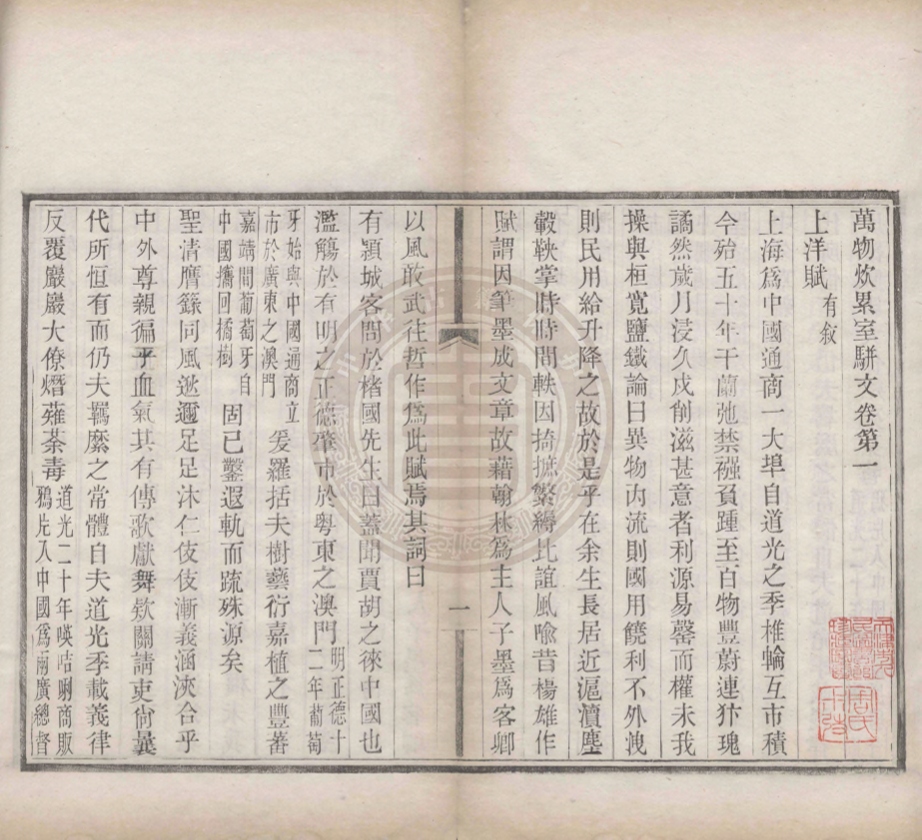 萬物炊累室駢文卷第一
上洋賦有敘
上海爲中國通商一大埠自道光之季椎輪互市積
今殆五十年干蘭弛禁襁負踵至百物豐蔚連犿瑰
譎然歲月浸久戍削滋甚意者利源易罄而權未我
操與桓寬鹽鐵論曰異物內流則國用饒利不外洩
則民用給升降之故於是乎在余生長居近滬瀆塵
轂鞅掌時時間軼因掎摭繁縟比誼風喻昔楊雄作
賦謂因筆墨成文章故藉翰林爲主人子墨爲客卿
以風敢武往哲作爲此賦焉其詞曰
有潁城客問於楮國先生曰蓋聞賈胡之徠中國也
濫觴於有明之正德肇市於粵東之澳門明正德十
二年葡萄
牙始與中國通商立
市於廣東之澳門爰羅括夫樹藝衍嘉植之豐蕃
嘉靖間葡萄牙自
中國攜回橘樹固已鑿遐軌而疏殊源矣
聖清膺籙同風遬邇足足沐仁伎伎漸義涵浹合乎
中外尊親徧乎血氣其有傳歌獻舞欵關請吏尙曩
代所恒有而仍夫羈縻之常體自夫道光季載義律
反覆巖巖大僚熸薙荼毒道光二十年暎咭唎商販
鴉片入中國爲兩廣總督
一